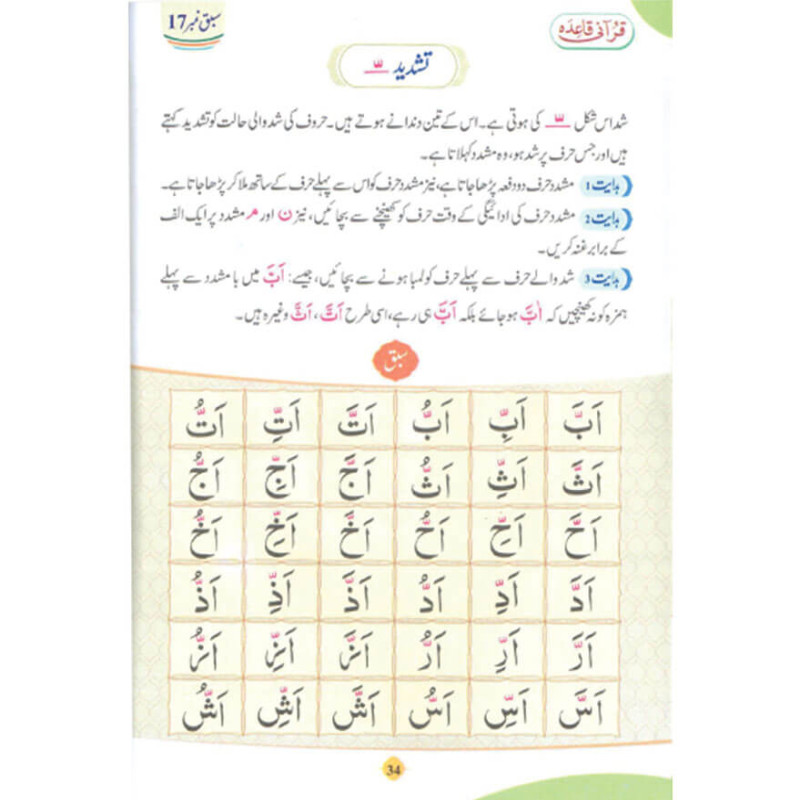 قرآنی قاعدہ
سبق نمبر 17
تشدید ــّـ
شد اس شکل ــّـ کی ہوتی ہے۔ اس کے تین دندانے ہوتے ہیں۔ حروف کی شد والی حالت کو تشدید کہتے
ہیں اور جس حرف پر شد ہو، وہ مشدد کہلاتا ہے۔
ہدایت 1 مشدد حرف دو دفعہ پڑھا جاتا ہے، نیز مشدد حرف کو اس سے پہلے حرف کے ساتھ ملا کر پڑھا جاتا ہے۔
ہدایت 2 مشدد حرف کی ادائیگی کے وقت حرف کو کھینچنے سے بچائیں، نیز ن اور م مشدد پر ایک الف
کے برابر غنہ کریں۔
ہدایت 3 شد والے حرف سے پہلے حرف کو لمبا ہونے سے بچائیں، جیسے: اَبَّ میں با مشدد سے پہلے
ہمزہ کو نہ کھینچیں کہ اٰبَّ ہو جائے بلکہ اَبَّ ہی رہے، اسی طرح اَتَّ، اَثَّ وغیرہ ہیں۔
سبق
اَبَّ اَبِّ اَبُّ اَتَّ اَتِّ اَتُّ
اَثَّ اَثِّ اَثُّ اَجَّ اَجِّ اَجُّ
اَحَّ اَحِّ اَحُّ اَخَّ اَخِّ اَخُّ
اَدَّ اَدِّ اَدُّ اَذَّ اَذِّ اَذُّ
اَرَّ اَرِّ اَرُّ اَزَّ اَزِّ اَزُّ
اَسَّ اَسِّ اَسُّ اَشَّ اَشِّ اَشُّ
34